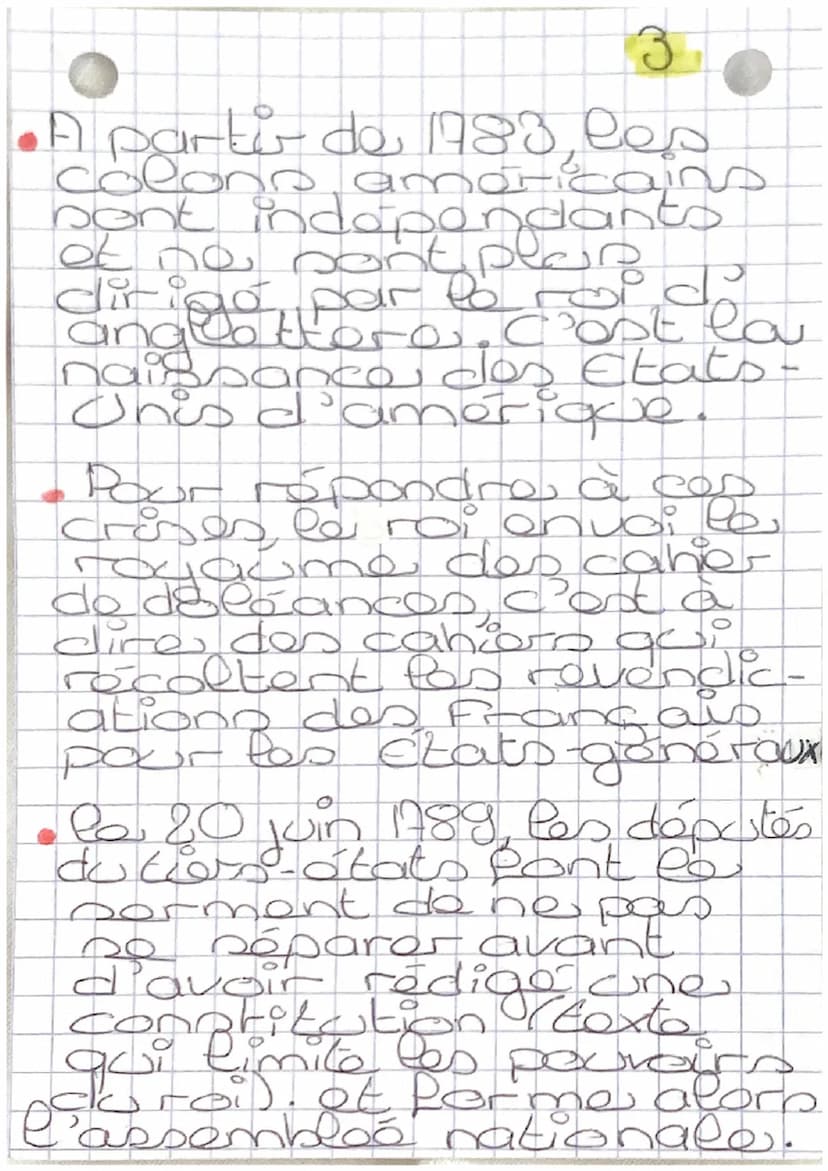 3
• A partir de 1783, les
colons américains
sont indépendants
et ne sont plus
dirigé par le roi d'
anglettere. C'est la
naissance des Etats-
Unis d'amérique.
• Pour répondre à ces
crises, le roi envoi le
royaume des cahier
de doléances, c'est à
dire des cahiers qui
récoltent les revendic-
ations des Français
pour les États-généraux
• le 20 juin 1789, les députés
du tiers-états font le
serment de ne pas
se séparer avant
d'avoir rédigé une
constitution (texte
qui limite les pouvoirs
du roi). et forme alors
l'assemblée nationale.